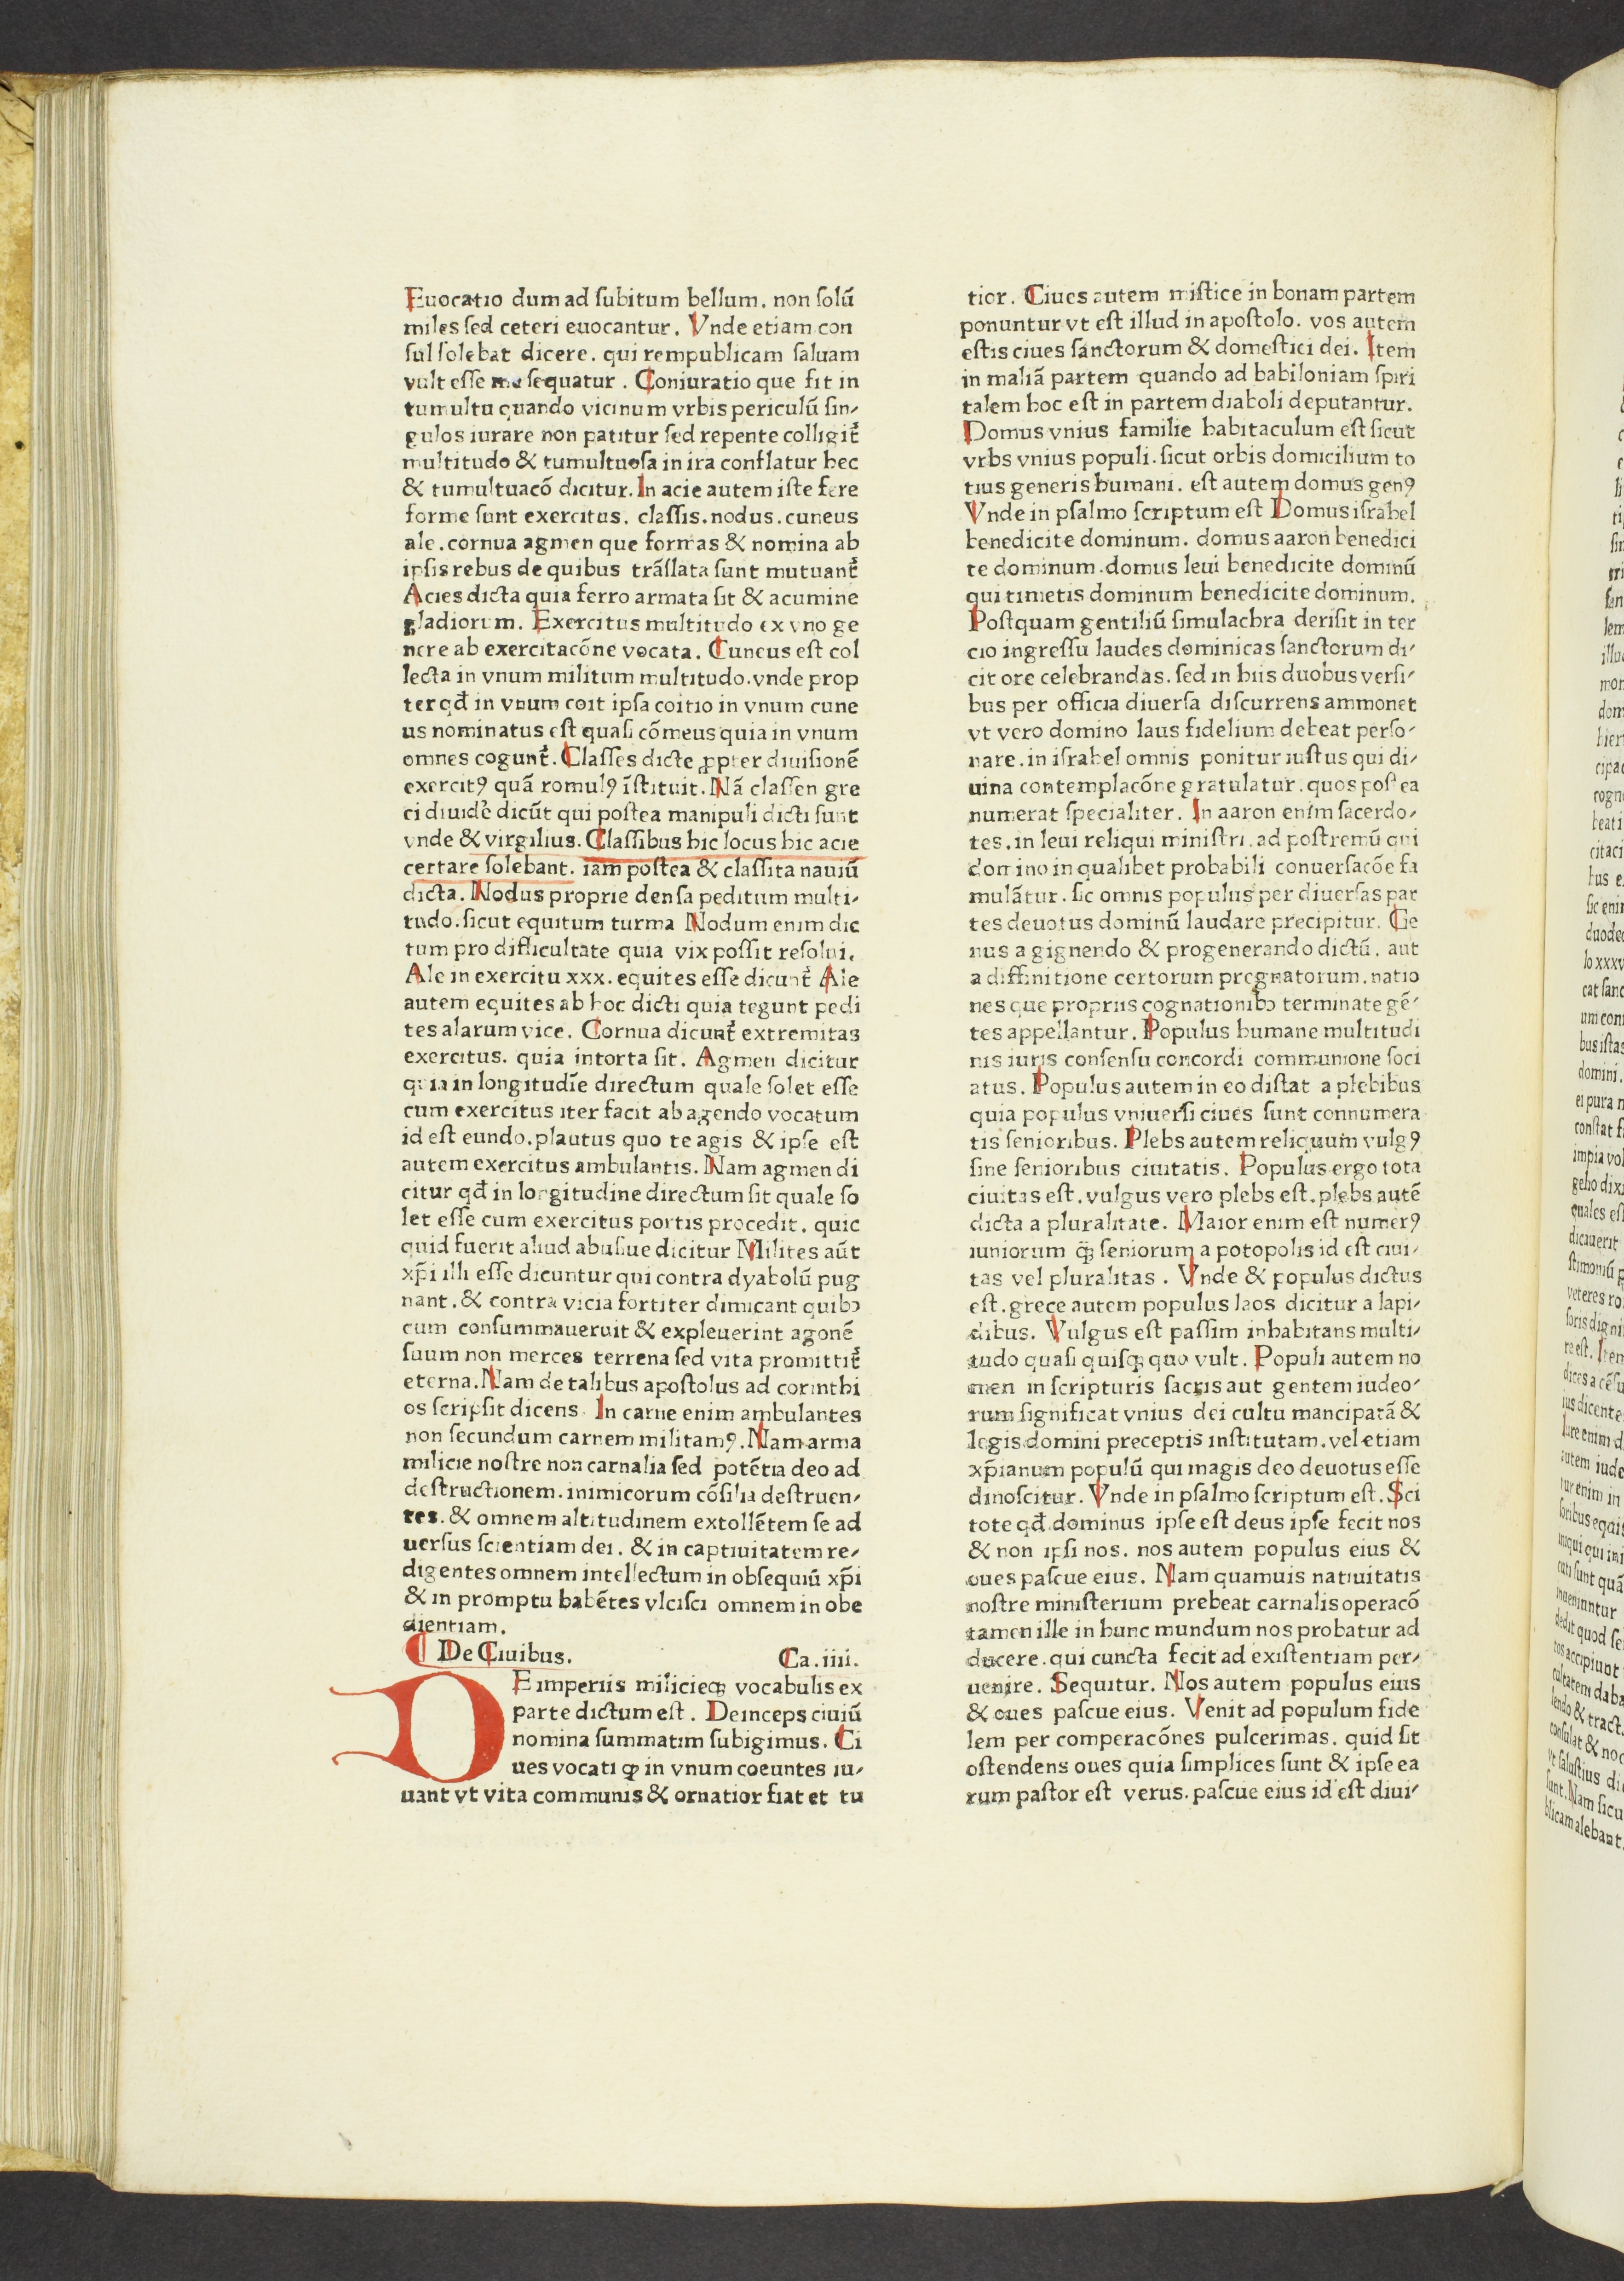 Euocatio dum ad ſubitum bellum. non ſolū
miles ſed ceteri euocantur. Vnde etiam con
ſul ſolebat dicere. qui rempublicam ſaluam
vult eſſe me ſequatur. Coniuratio que fit in
tumultu quando vicinum vrbis periculū ſin⸗
gulos iurare non patitur ſed repente colligit᷑
multitudo & tumultuoſa in ira conflatur hec
& tumultuacō dicitur. In acie autem iſte fere
forme ſunt exercitus. claſſis. nodus. cuneus
ale. cornua agmen que formas & nomina ab
ipſis rebus de quibus trāſlata ſunt mutuant᷑
Acies dicta quia ferro armata ſit & acumine
gladiorum. Exercitus multitudo ex vno ge
nere ab exercitacōne vocata. Cuneus eſt col
lecta in vnum militum multitudo. vnde prop
ter qđ in vnum coit ipſa coitio in vnum cune
us nominatus eſt quaſi cōmeus quia in vnum
omnes cogunt᷑. Claſſes dicte ꝓpter diuiſionē
exercitꝰ quā romulꝰ īſtituit. Nā claſſen gre
ci diuidẻ dicūt qui poſtea manipuli dicti ſunt
vnde & virgilius. Claſſibus hic locus hic acie
certare ſolebant. iam poſtea & claſſita nauiū
dicta. Nodus proprie denſa peditum multi⸗
tudo. ſicut equitum turma Nodum enim dic
tum pro difficultate quia vix poſſit reſolui.
Ale in exercitu xxx. equites eſſe dicunt᷑ Ale
autem equites ab hoc dicti quia tegunt pedi
tes alarum vice. Cornua dicunt᷑ extremitas
exercitus. quia intorta ſit. Agmen dicitur
quia in longitudīe directum quale ſolet eſſe
cum exercitus iter facit ab agendo vocatum
id eſt eundo. plautus quo te agis & ipſe eſt
autem exercitus ambulantis. Nam agmen di
citur qđ in longitudine directum ſit quale ſo
let eſſe cum exercitus portis procedit. quic
quid fuerit aliud abuſiue dicitur Milites aūt
xp̄i illi eſſe dicuntur qui contra dyabolū pug
nant. & contra vicia fortiter dimicant quibꝫ
cum conſummaueruit & expleuerint agonē
ſuum non merces terrena ſed vita promittit᷑
eterna. Nam de talibus apoſtolus ad corinthi
os ſcripſit dicens. In carne enim ambulantes
non ſecundum carnem militamꝰ. Nam arma
milicie noſtre non carnalia ſed potētia deo ad
deſtructionem. inimicorum cōſilia deſtruen⸗
tes. & omnem altitudinem extollētem ſe ad
uerſus ſcientiam dei. & in captiuitatem re⸗
digentes omnem intellectum in obſequiū xp̄i
& in promptu habētes vlciſci omnem in obe
dientiam.
¶ De Ciuibus. Ca. iiii.
DE imperiis milicieqꝫ vocabulis ex
parte dictum eſt. Deinceps ciuiū
nomina ſummatim ſubigimus. Ci
ues vocati ꝙ in vnum coeuntes iu⸗
uant vt vita communis & ornatior fiat et tu
tior. Ciues autem miſtice in bonam partem
ponuntur vt eſt illud in apoſtolo. vos autem
eſtis ciues ſanctorum & domeſtici dei. Item
in maliā partem quando ad babiloniam ſpiri
talem hoc eſt in partem diaboli deputantur.
Domus vnius familie habitaculum eſt ſicut
vrbs vnius populi. ſicut orbis domicilium to
tius generis humani. eſt autem domus genꝰ
Vnde in pſalmo ſcriptum eſt Domus iſrahel
benedicite dominum. domus aaron benedici
te dominum. domus leui benedicite dominū
qui timetis dominum benedicite dominum.
Poſtquam gentiliū ſimulachra deriſit in ter
cio ingreſſu laudes dominicas ſanctorum di⸗
cit ore celebrandas. ſed in hiis duobus verſi⸗
bus per officia diuerſa diſcurrens ammonet
vt vero domino laus fidelium debeat perſo⸗
nare. in iſrahel omnis ponitur iuſtus qui di⸗
uina contemplacōne gratulatur. quos poſtea
numerat ſpecialiter. In aaron enim ſacerdo⸗
tes. in leui reliqui miniſtri. ad poſtremū qui
domino in qualibet probabili conuerſacōe fa
mulātur. ſic omnis populus per diuerſas par
tes deuotus dominū laudare precipitur. Ge
nus a gignendo & progenerando dictū. aut
a diffinitione certorum prognatorum. natio
nes que propriis cognationibꝫ terminate gē⸗
tes appellantur. Populus humane multitudi
nis iuris conſenſu concordi communione ſoci
atus. Populus autem in eo diſtat a plebibus
quia populus vniuerſi ciues ſunt connumera
tis ſenioribus. Plebs autem reliquum vulgꝰ
ſine ſenioribus ciuitatis. Populus ergo tota
ciuitas eſt. vulgus vero plebs eſt. plebs autē
dicta a pluralitate. Maior enim eſt numerꝰ
iuniorum q̄ꝫ ſeniorum a potopolis id eſt ciui⸗
tas vel pluralitas. Vnde & populus dictus
eſt. grece autem populus laos dicitur a lapi⸗
dibus. Vulgus eſt paſſim inhabitans multi⸗
tudo quaſi quiſqꝫ quo vult. Populi autem no
men in ſcripturis ſacris aut gentem iudeo⸗
rum ſignificat vnius dei cultu mancipatā &
legis domini preceptis inſtitutam. vel etiam
xp̄ianum populū qui magis deo deuotus eſſe
dinoſcitur. Vnde in pſalmo ſcriptum eſt. Sci
tote qđ dominus ipſe eſt deus ipſe fecit nos
& non ipſi nos. nos autem populus eius &
oues paſcue eius. Nam quamuis natiuitatis
noſtre miniſterium prebeat carnalis operacō
tamen ille in hunc mundum nos probatur ad
ducere. qui cuncta fecit ad exiſtentiam per⸗
uenire. Sequitur. Nos autem populus eius
& oues paſcue eius. Venit ad populum fide
lem per comperacōnes pulcerimas. quid ſit
oſtendens oues quia ſimplices ſunt & ipſe ea
rum paſtor eſt verus. paſcue eius id eſt diui⸗